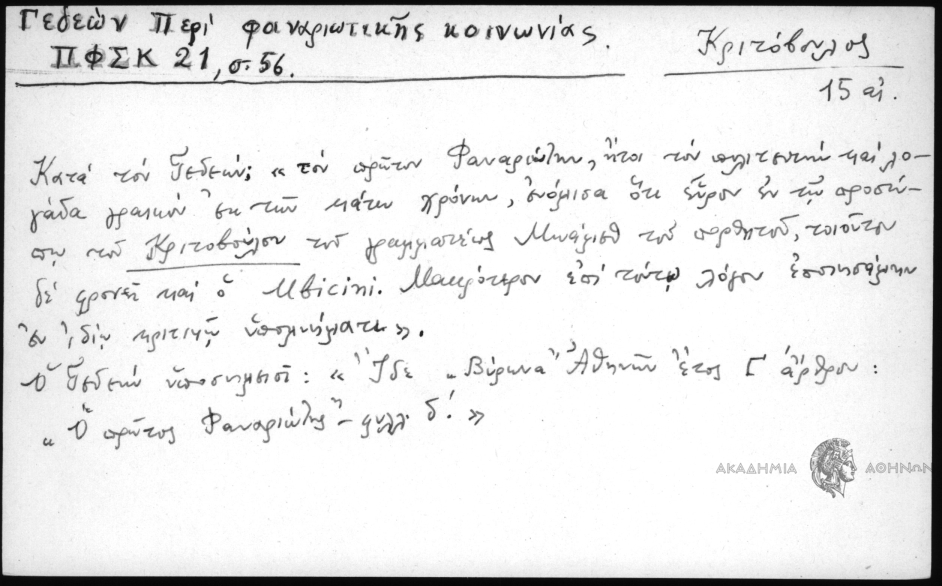 Γεδεών Περί φαναριωτικῆς κοινωνίας.
ΠΦΣΚ 21, σ. 56.
Κριτόβουλος
15 αἰ.
Κατά τόν Γεδεών; «τόν πρῶτον Φαναριώτην, ἤτοι τόν πολιτευτήν καί λο-
γάδα γραικόν ἐκ τῶν κάτω χρόνων, ἐνόμισα ὅτι εὗρον ἐν τῷ προσώ-
πῳ τοῦ Κριτοβούλου τοῦ γραμματέως Μωάμεθ τοῦ πορθητοῦ, τοιοῦτον
δέ φρονεῖ καί ὁ Ubicini. Μακρότερον ἐπί τούτῳ λόγον ἐποιησάμην
ἐν ἰδίῳ κριτικῷ ὑπομνήματι».
Ὁ Γεδεών ὑποσημειοῖ: «Ἴδε „Βύρωνα" Ἀθηνῶν ἔτος Γ' ἄρθρον:
„Ὁ πρῶτος Φαναριώτης" – φυλλ. δ'.»
ΑΚΑΔΗΜΙΑ ΑΘΗΝΩΝ